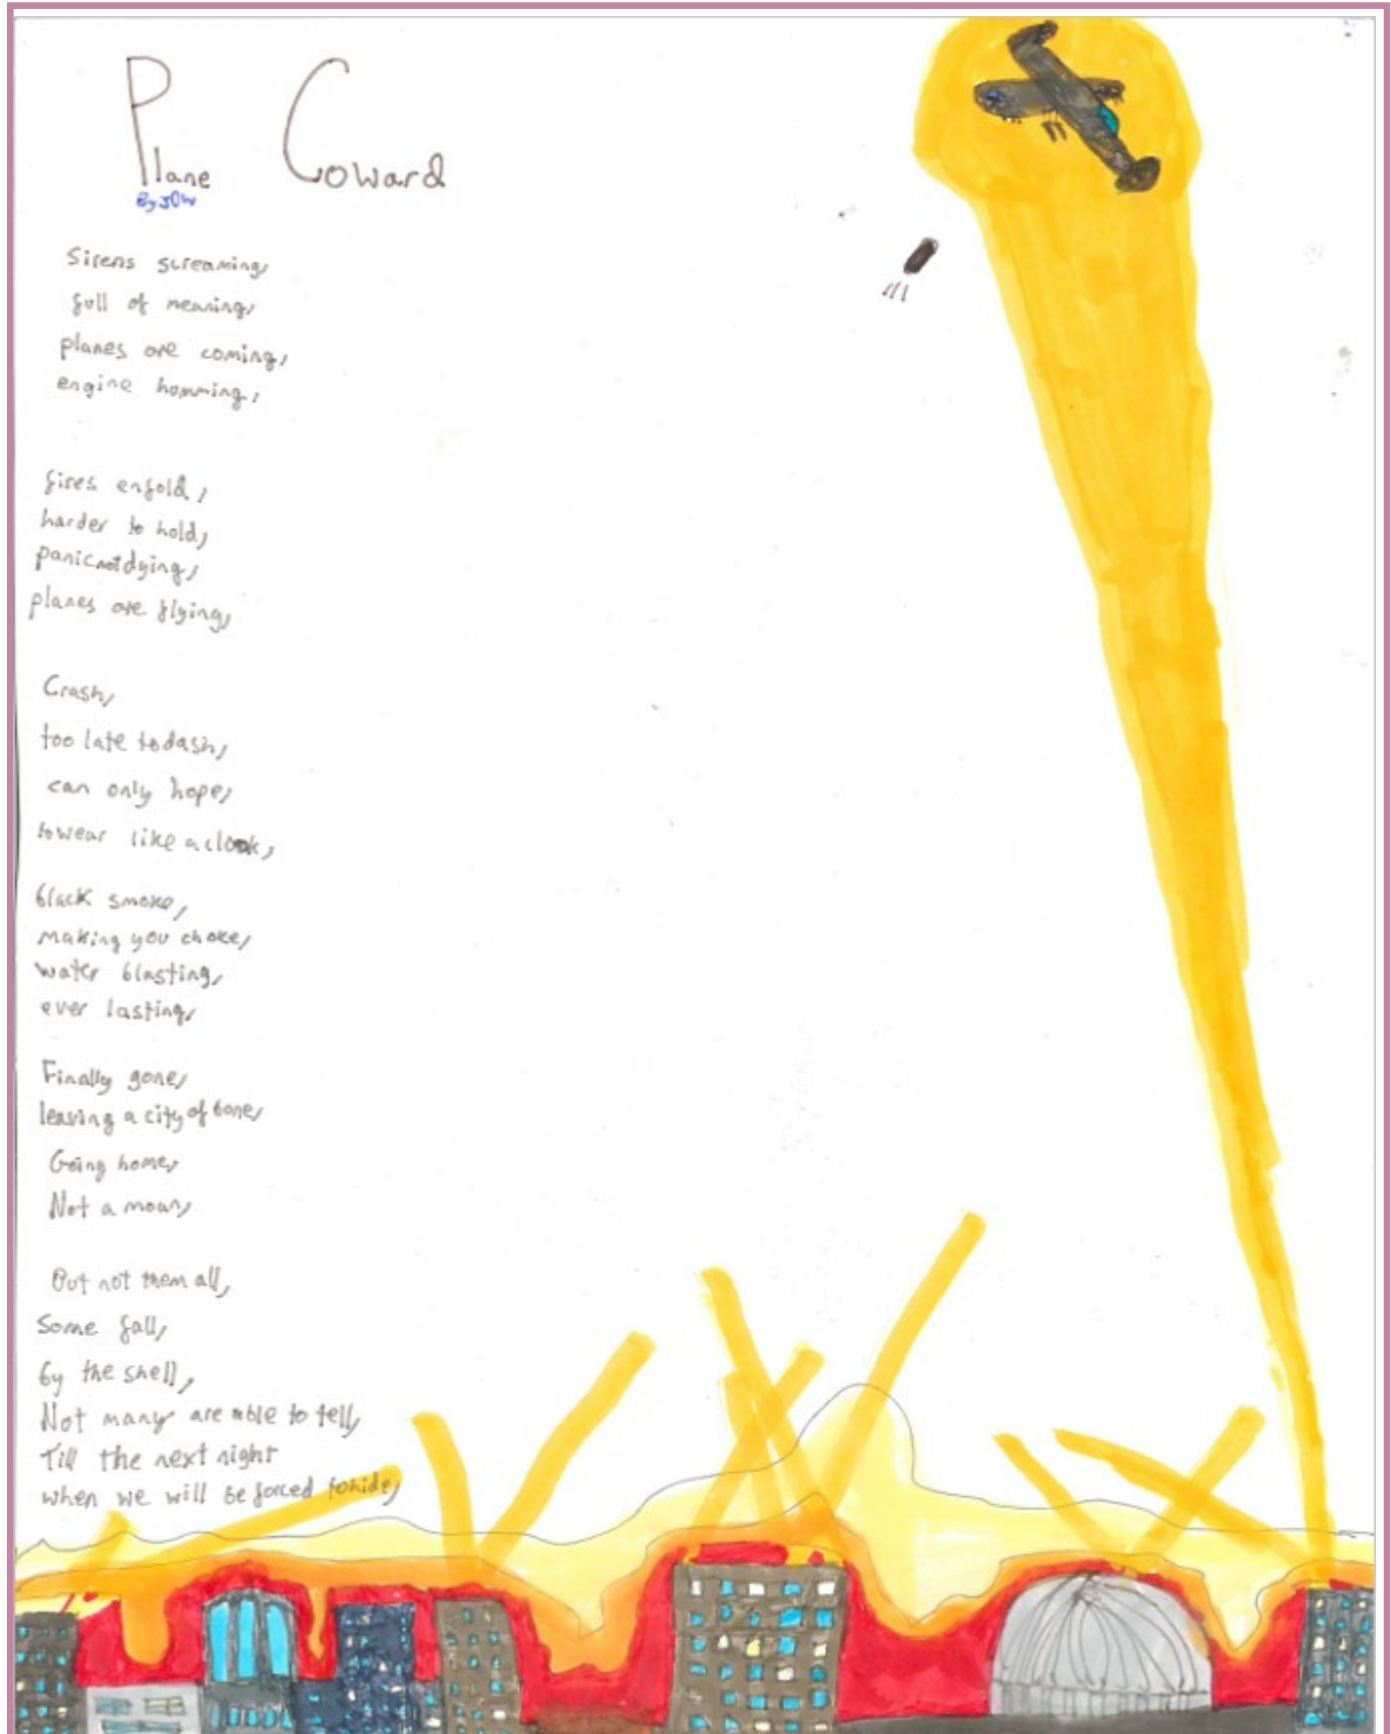 Plane Coward
By JOW
Sirens screaming,
full of meaning,
planes are coming,
engine homming,
fires enfold,
harder to hold,
panic not dying,
planes are flying,
Crash,
too late to dash,
can only hope,
to wear like a cloak,
black smoke,
making you choke,
water blasting,
ever lasting,
Finally gone,
leaving a city of bone,
Going home,
Not a moan,
But not them all,
Some fall,
by the shell,
Not many are able to tell,
Till the next night
when we will be forced to hide,